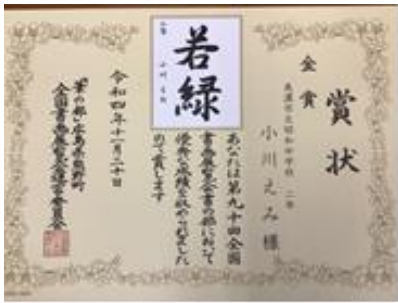 賞状
金賞
市立昭和中学校 二年
小川えみ様
あなたは第九十回全国
書画展覧会書の部において
優秀な成績を収められました
ので賞します
若緑
令和四年十一月二十日
筆の都 広島県熊野町
全国書画展覧会